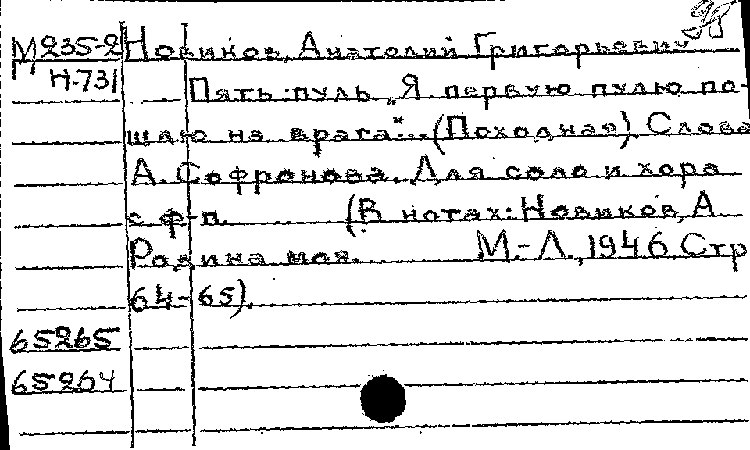 М235-2 Новиков, Анатолий Григорьевич
Н-731 Пять пуль „Я первую пулю по-
шлю на врага"... (Походная). Слова
А. Софронова. Для соло и хора
с ф-п. (В нотах: Новиков, А.
Родина моя. М.-Л., 1946. Стр.
64-65).
65265
65264